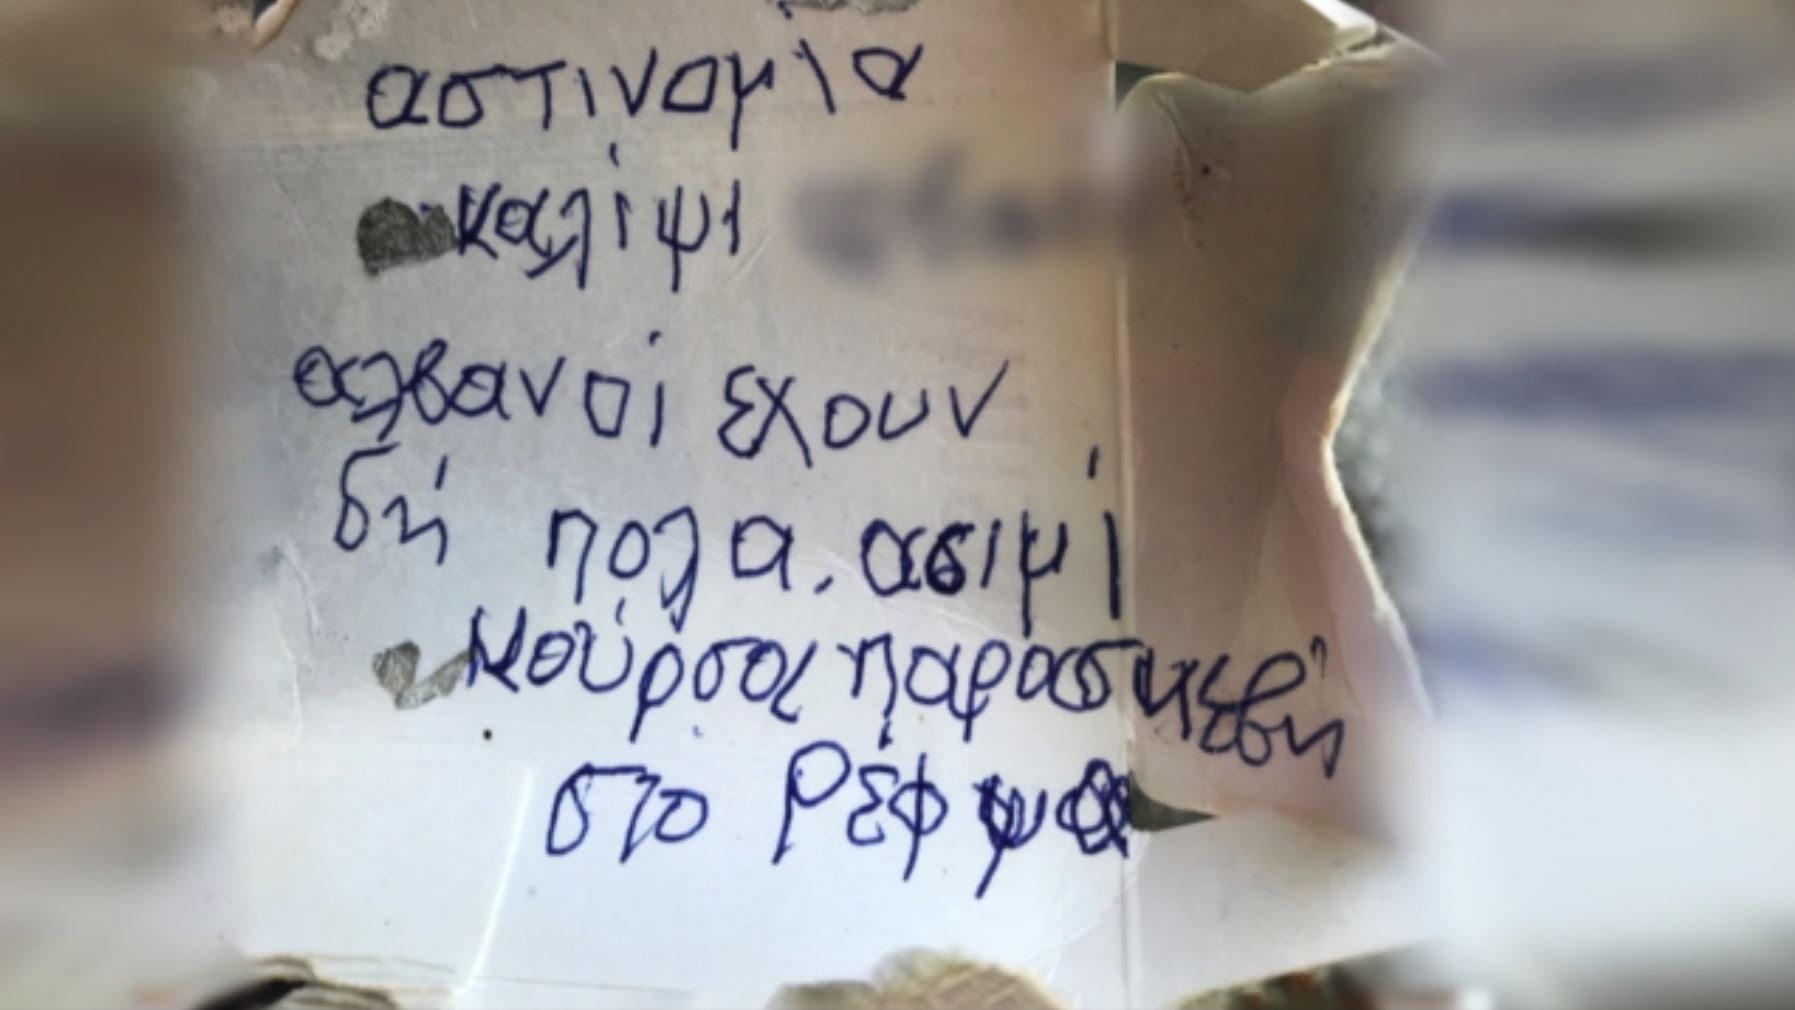 αστινομία
καλίψι
αλβανοί έχουν
δή πολα. ασιμί
κούρσα παρασκεβή
στο Ρέφ